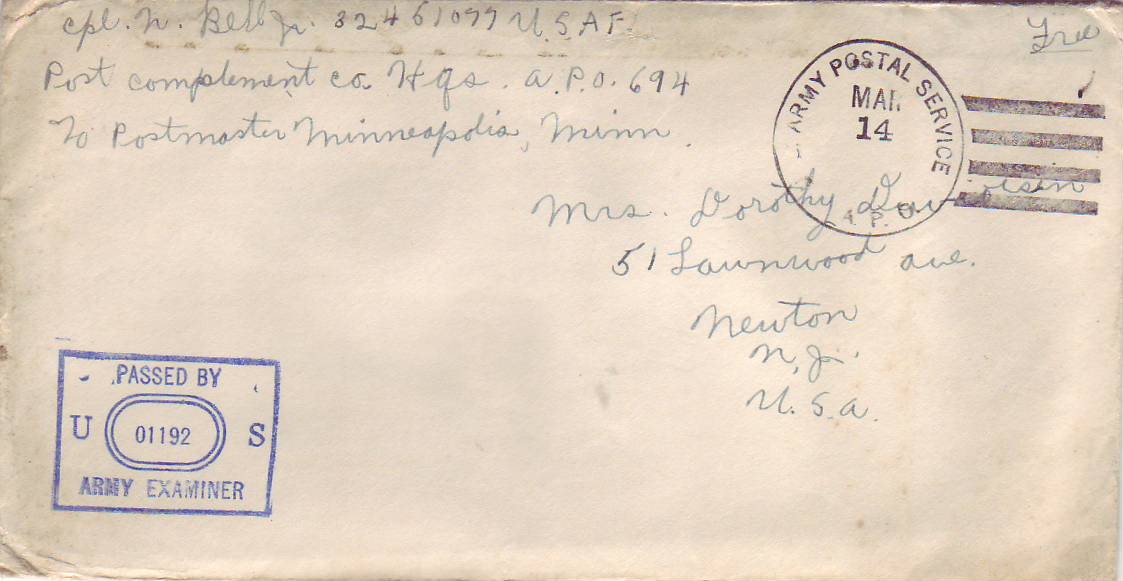 Cpl. N. Bell Jr. 32461099 U.S.A.F.
Free
Post complement co. Hqs. A.P.O. 694
To Postmaster Minneapolis, Minn.
ARMY POSTAL SERVICE
MAR
14
A.P.O.
Mrs. Dorothy
51 Lawnwood ave.
Newton
N.J.
U.S.A.
PASSED BY
U 01192 S
ARMY EXAMINER